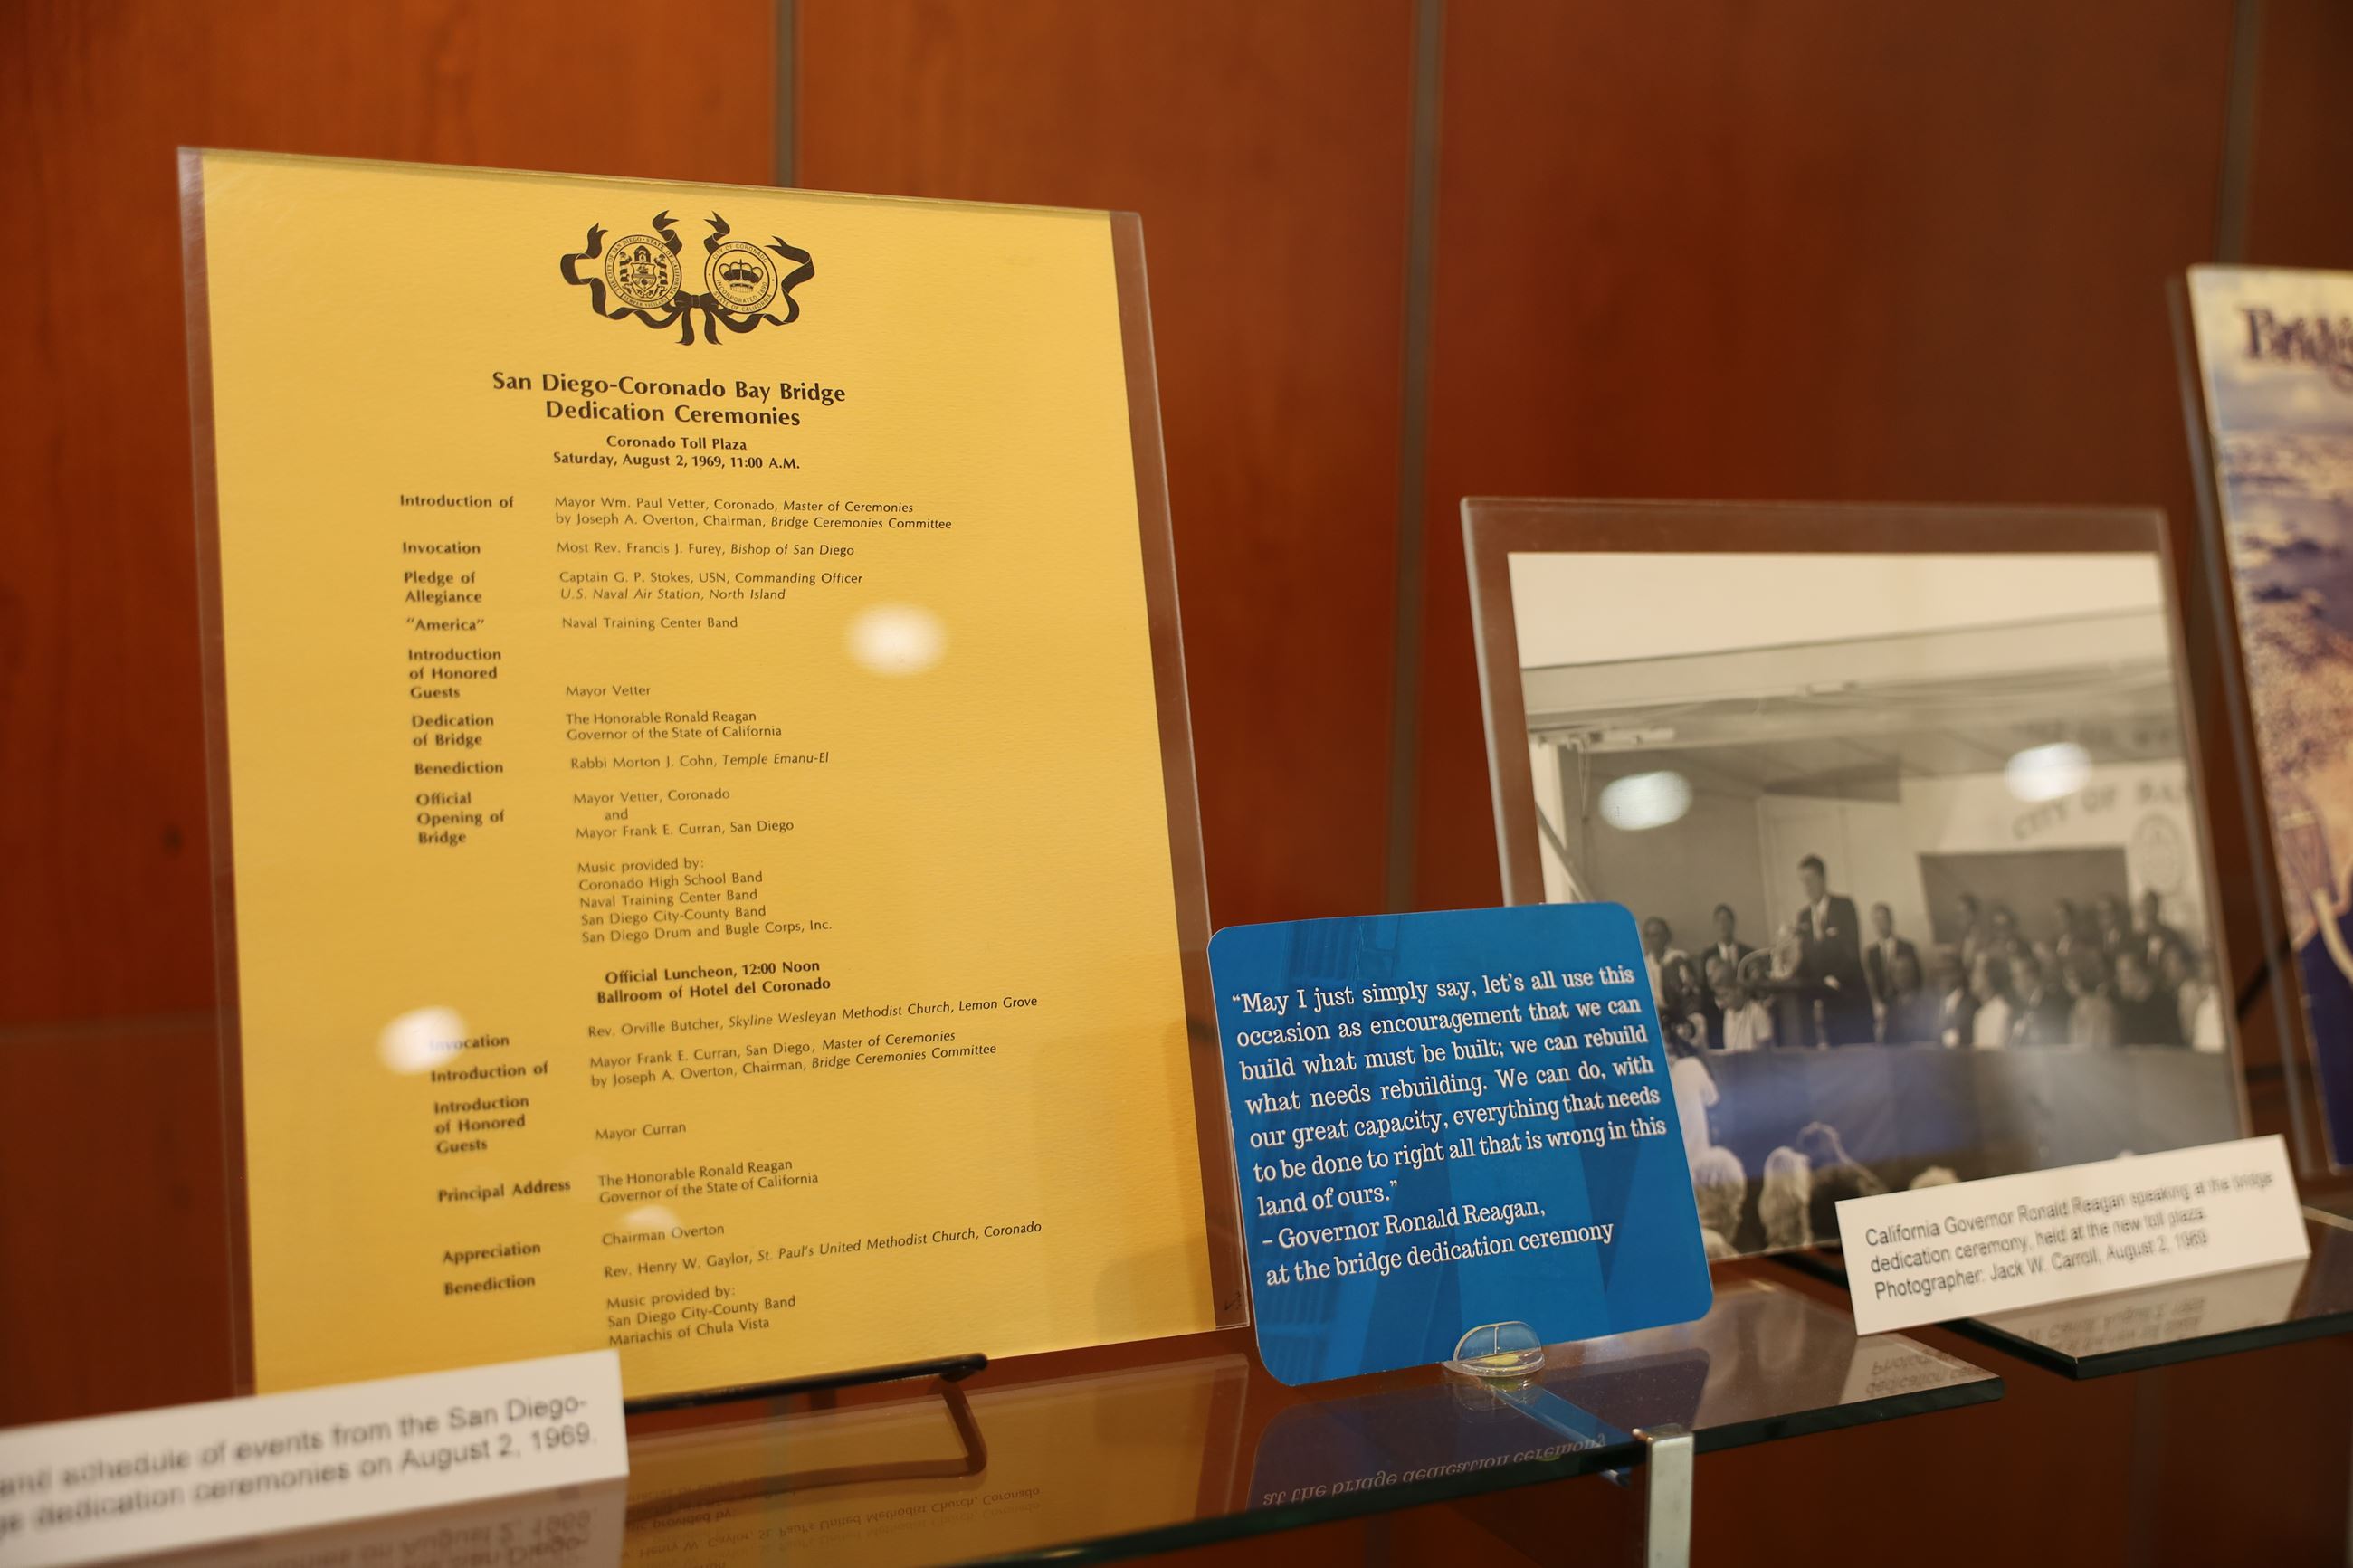 San Diego-Coronado Bay Bridge
Dedication Ceremonies
Coronado Toll Plaza
Saturday, August 2, 1969, 11:00 A.M.
Introduction of Mayor Wm. Paul Vetter, Coronado, Master of Ceremonies
by Joseph A. Overton, Chairman, Bridge Ceremonies Committee
Invocation Most Rev. Francis J. Furey, Bishop of San Diego
Pledge of Captain G. P. Stokes, USN, Commanding Officer
Allegiance U.S. Naval Air Station, North Island
"America" Naval Training Center Band
Introduction
of Honored
Guests Mayor Vetter
Dedication The Honorable Ronald Reagan
of Bridge Governor of the State of California
Benediction Rabbi Morton J. Cohn, Temple Emanu-El
Official Mayor Vetter, Coronado
Opening of and
Bridge Mayor Frank E. Curran, San Diego
Music provided by:
Coronado High School Band
Naval Training Center Band
San Diego City-County Band
San Diego Drum and Bugle Corps, Inc.
Official Luncheon, 12:00 Noon
Ballroom of Hotel del Coronado
Invocation Rev. Orville Butcher, Skyline Wesleyan Methodist Church, Lemon Grove
Introduction of Mayor Frank E. Curran, San Diego, Master of Ceremonies
by Joseph A. Overton, Chairman, Bridge Ceremonies Committee
Introduction
of Honored
Guests Mayor Curran
Principal Address The Honorable Ronald Reagan
Governor of the State of California
Appreciation Chairman Overton
Benediction Rev. Henry W. Gaylor, St. Paul's United Methodist Church, Coronado
Music provided by:
San Diego City-County Band
Mariachis of Chula Vista
and schedule of events from the San Diego-
dedication ceremonies on August 2, 1969.
“May I just simply say, let's all use this
occasion as encouragement that we can
build what must be built; we can rebuild
what needs rebuilding. We can do, with
our great capacity, everything that needs
to be done to right all that is wrong in this
land of ours.”
– Governor Ronald Reagan,
at the bridge dedication ceremony
CITY OF
California Governor Ronald Reagan speaking at the bridge
dedication ceremony, held at the new toll plaza.
Photographer: Jack W. Carroll, August 2, 1969